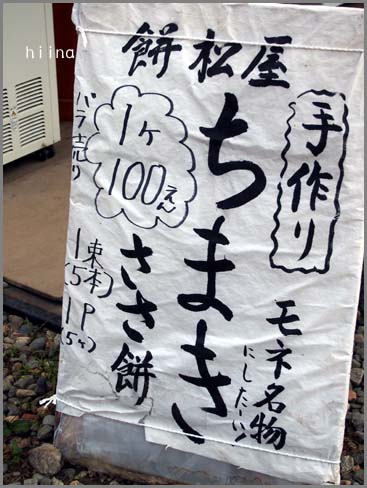 hiina
餅松屋
手作り
モネ名物
にしたーい!
ちまき
ささ餅
1ヶ
100えん
バラ売り
1束(5本)
1P(5ヶ)